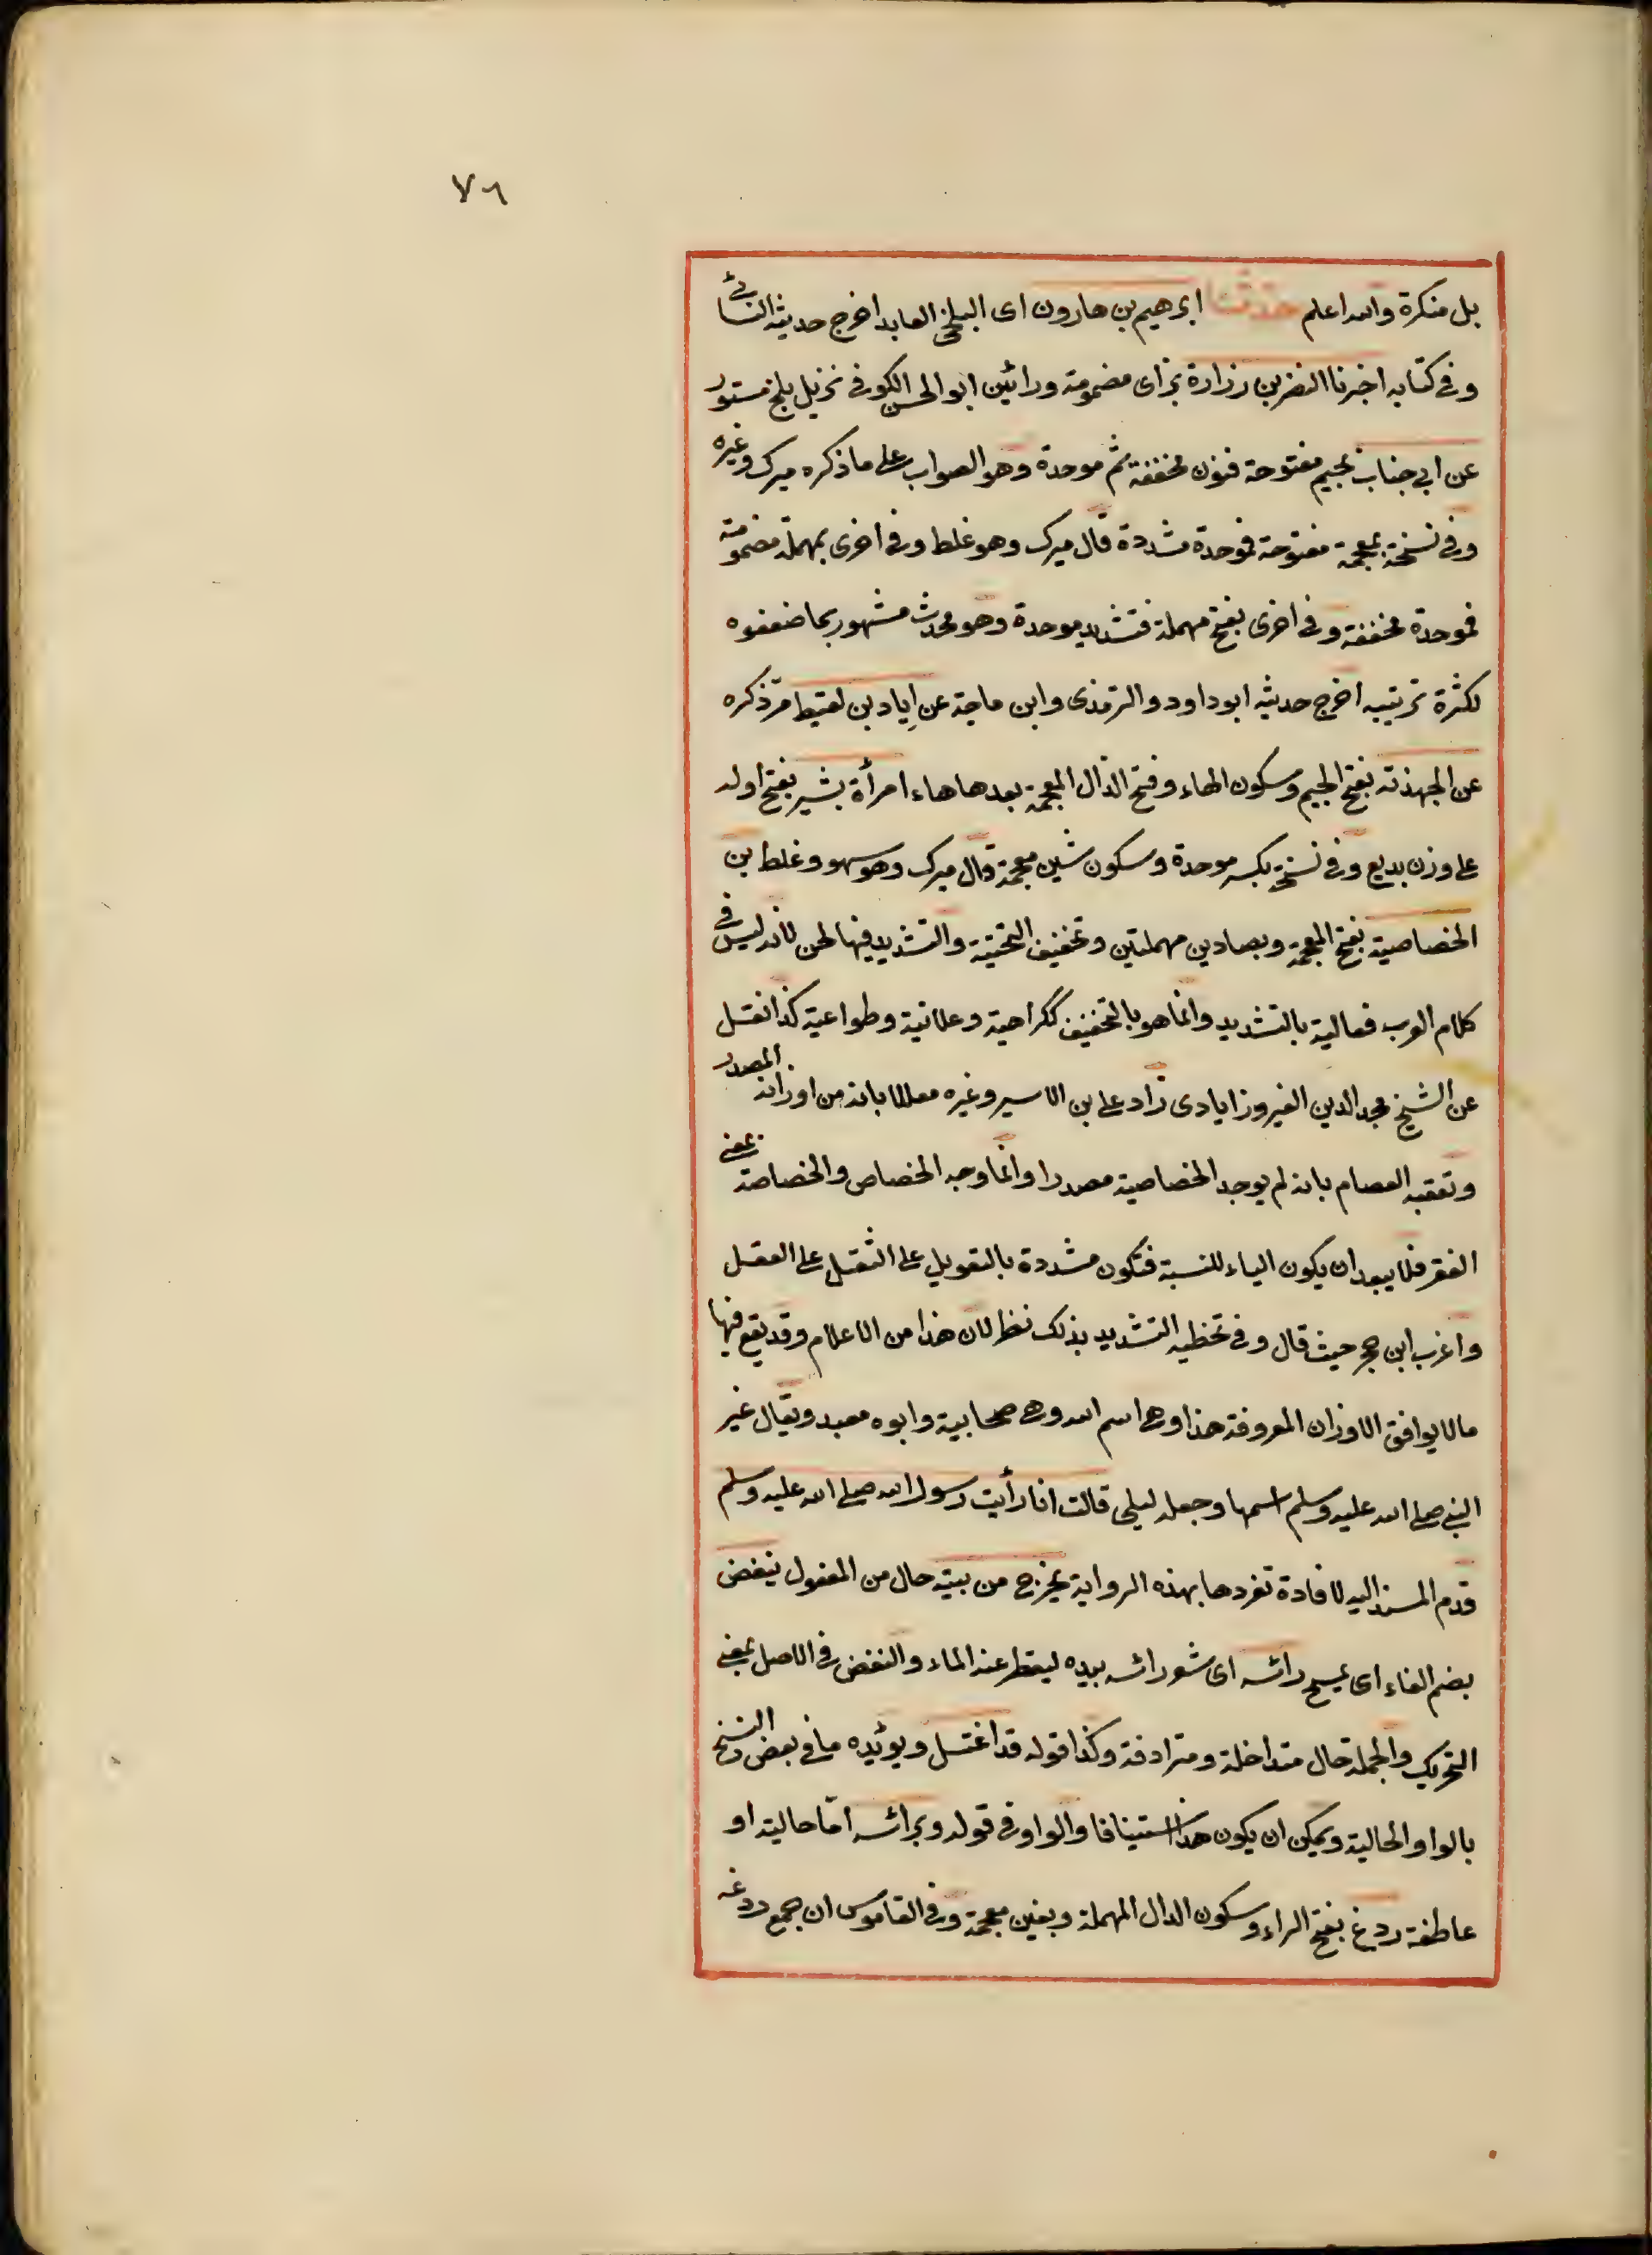 ٧٦
بل منكرة والله اعلم حدثنا ابرهيم بن هارون اى البلخى العابد اخرج حديثه النسائى
وفى كتابه اخبرنا النضر بن زرارة بزاى مضمومة ورائين ابو الحسن الكوفى نزيل بلخ مستور
عن ابى جناب بجيم مفتوحة فنون مخففة ثم موحدة وهو الصواب على ما ذكره ميرك وغيره
وفى نسخة بمعجمة مفتوحة فموحدة مشددة قال ميرك وهو غلط وفى اخرى بمهملة مضمومة
فموحدة مخففة وفى اخرى بفتح مهملة فتشديد موحدة وهو محدث مشهور بما ضعفوه
لكثرة ترتيبه اخرج حديثه ابو داود والترمذى وابن ماجة عن اِياد بن لقيط مرّ ذكره
عن الجهذته بفتح الجيم وسكون الهاء وفتح الذال المعجمة بعدها هاء امرأة بشير بفتح اوله
على وزن بديع وفى نسخة بكسر موحدة وسكون شين معجمة قال ميرك وهو سهو وغلط بن
الخصاصية بفتح المعجمة وبصادين مهملتين وتخفيف التحتية والتشديد فيها لحن لانه ليس فى
كلام العرب فعالية بالتشديد وانما هو بالتخفيف ككراهية وعلانية وطواعية كذا نقل
عن الشيخ مجد الدين الفيروزابادى زاد على بن الاسير وغيره معللا بانه من اوزان المصدر
وتعقبه العصام بانه لم يوجد الخصاصية مصدرا وانما وجد الخصاص والخصاصة بمعنى
الفقر فلا يبعد ان يكون الياء للنسبة فتكون مشددة بالتعويل على الثقل على العقل
واغرب ابن حجر حيث قال وفى تخطيه التشديد بذلك نظر لان هذا من الاعلام وقد يقع فيها
ما لا يوافق الاوزان المعروفة هذا وهى اسم امه وهى صحابية وابوه معبد ويقال غير
النبى صلى الله عليه وسلم اسمها وجعله ليلى قالت انا رأيت رسول الله صلى الله عليه وسلم
قدم المسند اليه لافادة تفردها بهذه الرواية يخرج من بيته حال من المفعول ينفض
بضم الفاء اى يمسح رائسه اى شعر رائسه بيده ليقطر عنه الماء والنفض فى الاصل بمعنى
التحريك والجملة حال متداخلة ومترادفة وكذا قوله قد اغتسل ويوئيده ما فى بعض النسخ
بالواو الحالية ويمكن ان يكون هذا استينافا والواو فى قوله وبرائسه امّا حالية او
عاطفة ردغ بفتح الراء وسكون الدال المهملة وبغين معجمة وفى القاموس ان جمع ردغه